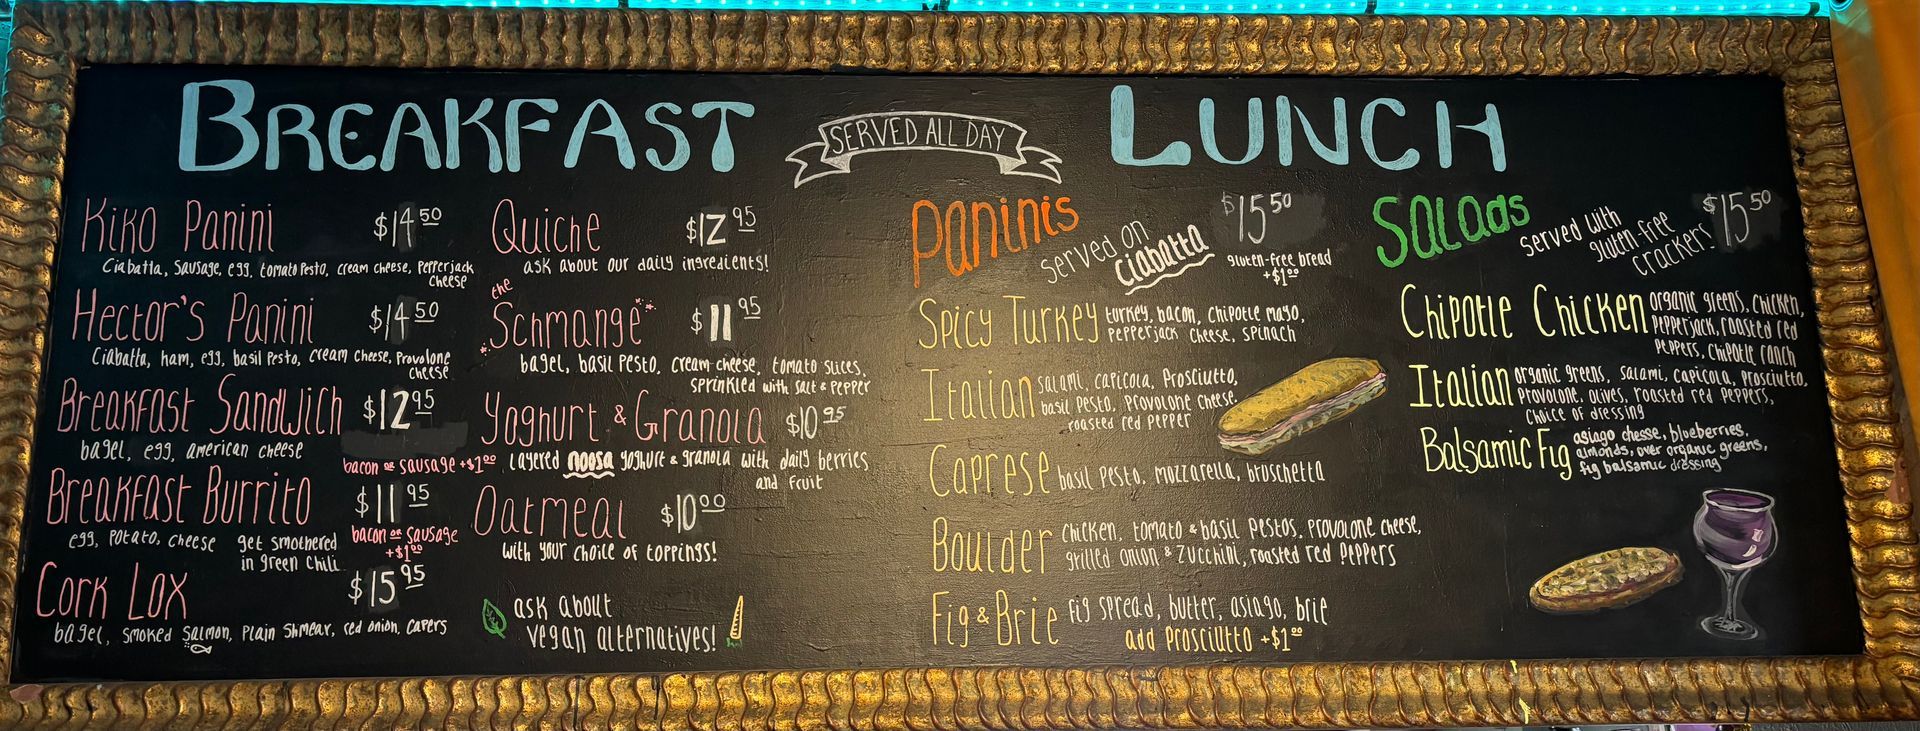 BREAKFAST
SERVED ALL DAY
LUNCH
Kiko Panini $14.50
Ciabatta, Sausage, egg, tomato Pesto, cream cheese, Pepperjack
cheese
Hector's Panini $14.50
Ciabatta, ham, egg, basil Pesto, cream cheese, Provolone
cheese
Breakfast Sandwich $12.95
bagel, egg, american cheese
bacon or sausage +$1.00
Breakfast Burrito $11.95
egg, Potato, cheese
get smothered
in green chili
bacon or sausage
+$1.00
Cork Lox $15.95
bagel, smoked Salmon, Plain Shmear, red onion, capers
Quiche $12.95
ask about our daily ingredients!
the
Schmange $11.95
bagel, basil Pesto, cream cheese, tomato slices,
sprinkled with salt & pepper
Yoghurt & Granola $10.95
Layered noosa yoghurt & granola with daily berries
and fruit
Oatmeal $10.00
with your choice of toppings!
ask about
vegan alternatives!
Paninis
served on
ciabatta
$15.50
gluten-free bread
+$1.00
Spicy Turkey turkey, bacon, chipotle mayo,
Pepperjack cheese, spinach
Italian salami, capicola, Prosciutto,
basil Pesto, Provolone cheese,
roasted red pepper
Caprese basil Pesto, mozzarella, bruschetta
Boulder Chicken, tomato & basil Pestos, Provolone cheese,
grilled onion & zucchini, roasted red Peppers
Fig & Brie Fig spread, butter, asiago, brie
add Prosciutto +$1.00
Salads
served with
gluten-free
crackers
$15.50
Chipotle Chicken organic greens, chicken,
Pepperjack, roasted red
Peppers, Chipotle ranch
Italian organic greens, salami, capicola, Prosciutto,
Provolone, olives, roasted red Peppers,
choice of dressing
Balsamic Fig asiago cheese, blueberries,
almonds, over organic greens,
fig balsamic dressing